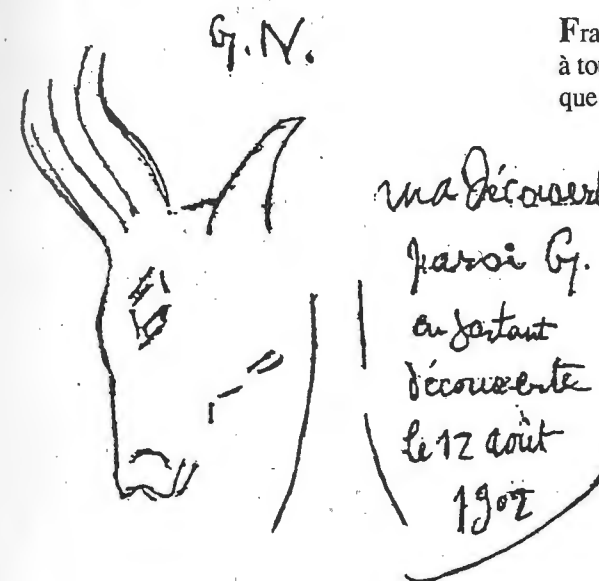 G.N.
Fra
à tou
que
ma découvert
paroi G.
en sortant
découverte
le 12 août
1902